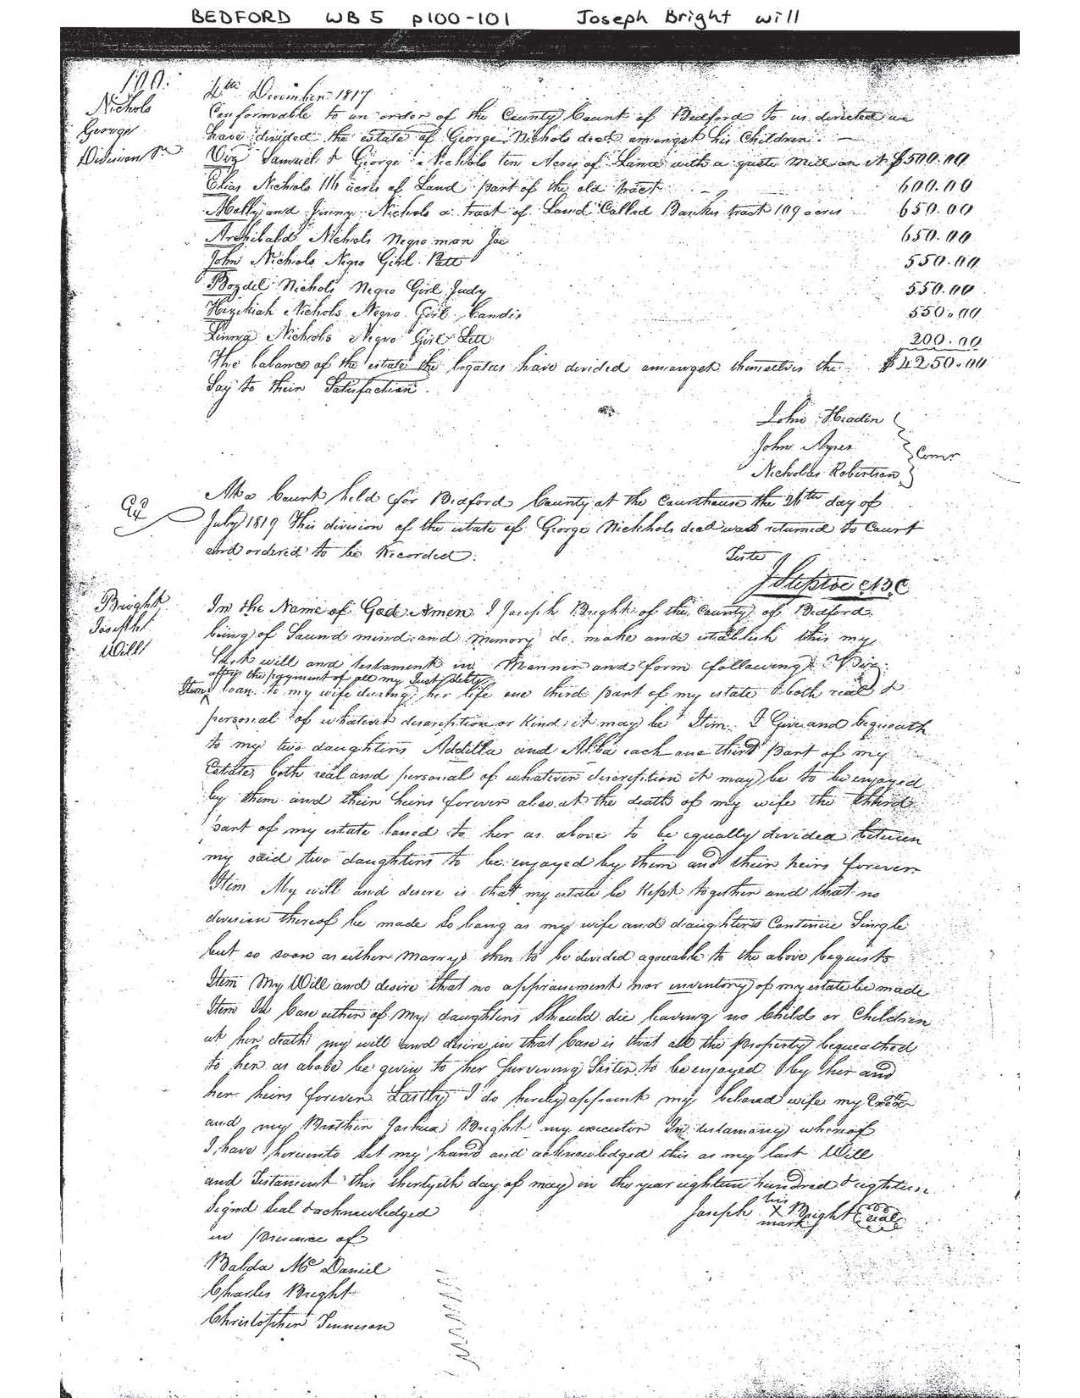 BEDFORD WB 5 p100-101 Joseph Bright will
100.
Nichols
George
Division &c
4th December 1817
Conformable to an order of the County Court of Bedford to us directed we
have divided the estate of George Nichols decd amongst his Children.
Viz Samuel & George Nichols ten Acres of Land with a grist mill on it $500.00
Elias Nichols 116 acres of Land part of the old tract 600.00
Melly and Jinny Nichols a tract of Land Called Bankes tract 109 acres 650.00
Archibald Nichols Negro man Joe 650.00
John Nichols Negro Girl Patt 550.00
Bogdel Nichols Negro Girl Judy 550.00
Hezikiah Nichols Negro Girl Candis 550.00
Linny Nichols Negro Girl Lett 200.00
The balance of the estate the legatees have divided amongst themselves the $4250.00
Say to their Satisfaction.
John Headen
John Ayres
Nicholas Robertson
Comr
At a Court held for Bedford County at the Courthouse the 26th day of
July 1819 This division of the estate of George Nichols decd was returned to Court
and ordered to be Recorded.
Teste
J Steptoe C.B.C
Bright
Joseph
Will
In the Name of God Amen I Joseph Bright of the County of Bedford
being of Sound mind and memory do make and establish this my
Last will and testament in Manner and form following Viz:
after the payment of all my Just debts
Item I loan to my wife during her life one third part of my estate both real &
personal of whatever description or Kind it may be Item. I Give and bequeath
to my two daughters Addilla and Alba each one third part of my
Estate both real and personal of whatever discreption it may be to be enjoyed
by them and their heirs forever also at the death of my wife the third
part of my estate loned to her as above to be equally divided between
my said two daughters to be enjoyed by them and their heirs forever
Item My will and desire is that my estate be Kept together and that no
division thereof be made So long as my wife and daughters Continue Single
but so soon as either Marrys then to be divided agreeable to the above bequests
Item My Will and desire that no appraisement nor inventory of my estate be made
Item In Case either of my daughters Should die leaving no Child or Children
at her death my will and desire in that Case is that all the Property bequeathed
to her as above be given to her Surviving Sister to be enjoyed by her and
her heirs forever Lastly I do hereby appoint my beloved wife my
and my Brother Joshua Bright my executor In testamony whereof
I have hereunto Set my hand and acknowledged this as my last Will
and Testament this thirtyeth day of may in the year eighteen hundred & eighteen.
Signd Seal & acknowledged
in presence of
Joseph his X mark Bright Seal
Balda Mc Daniel
Charles Bright
Christopher Tennison